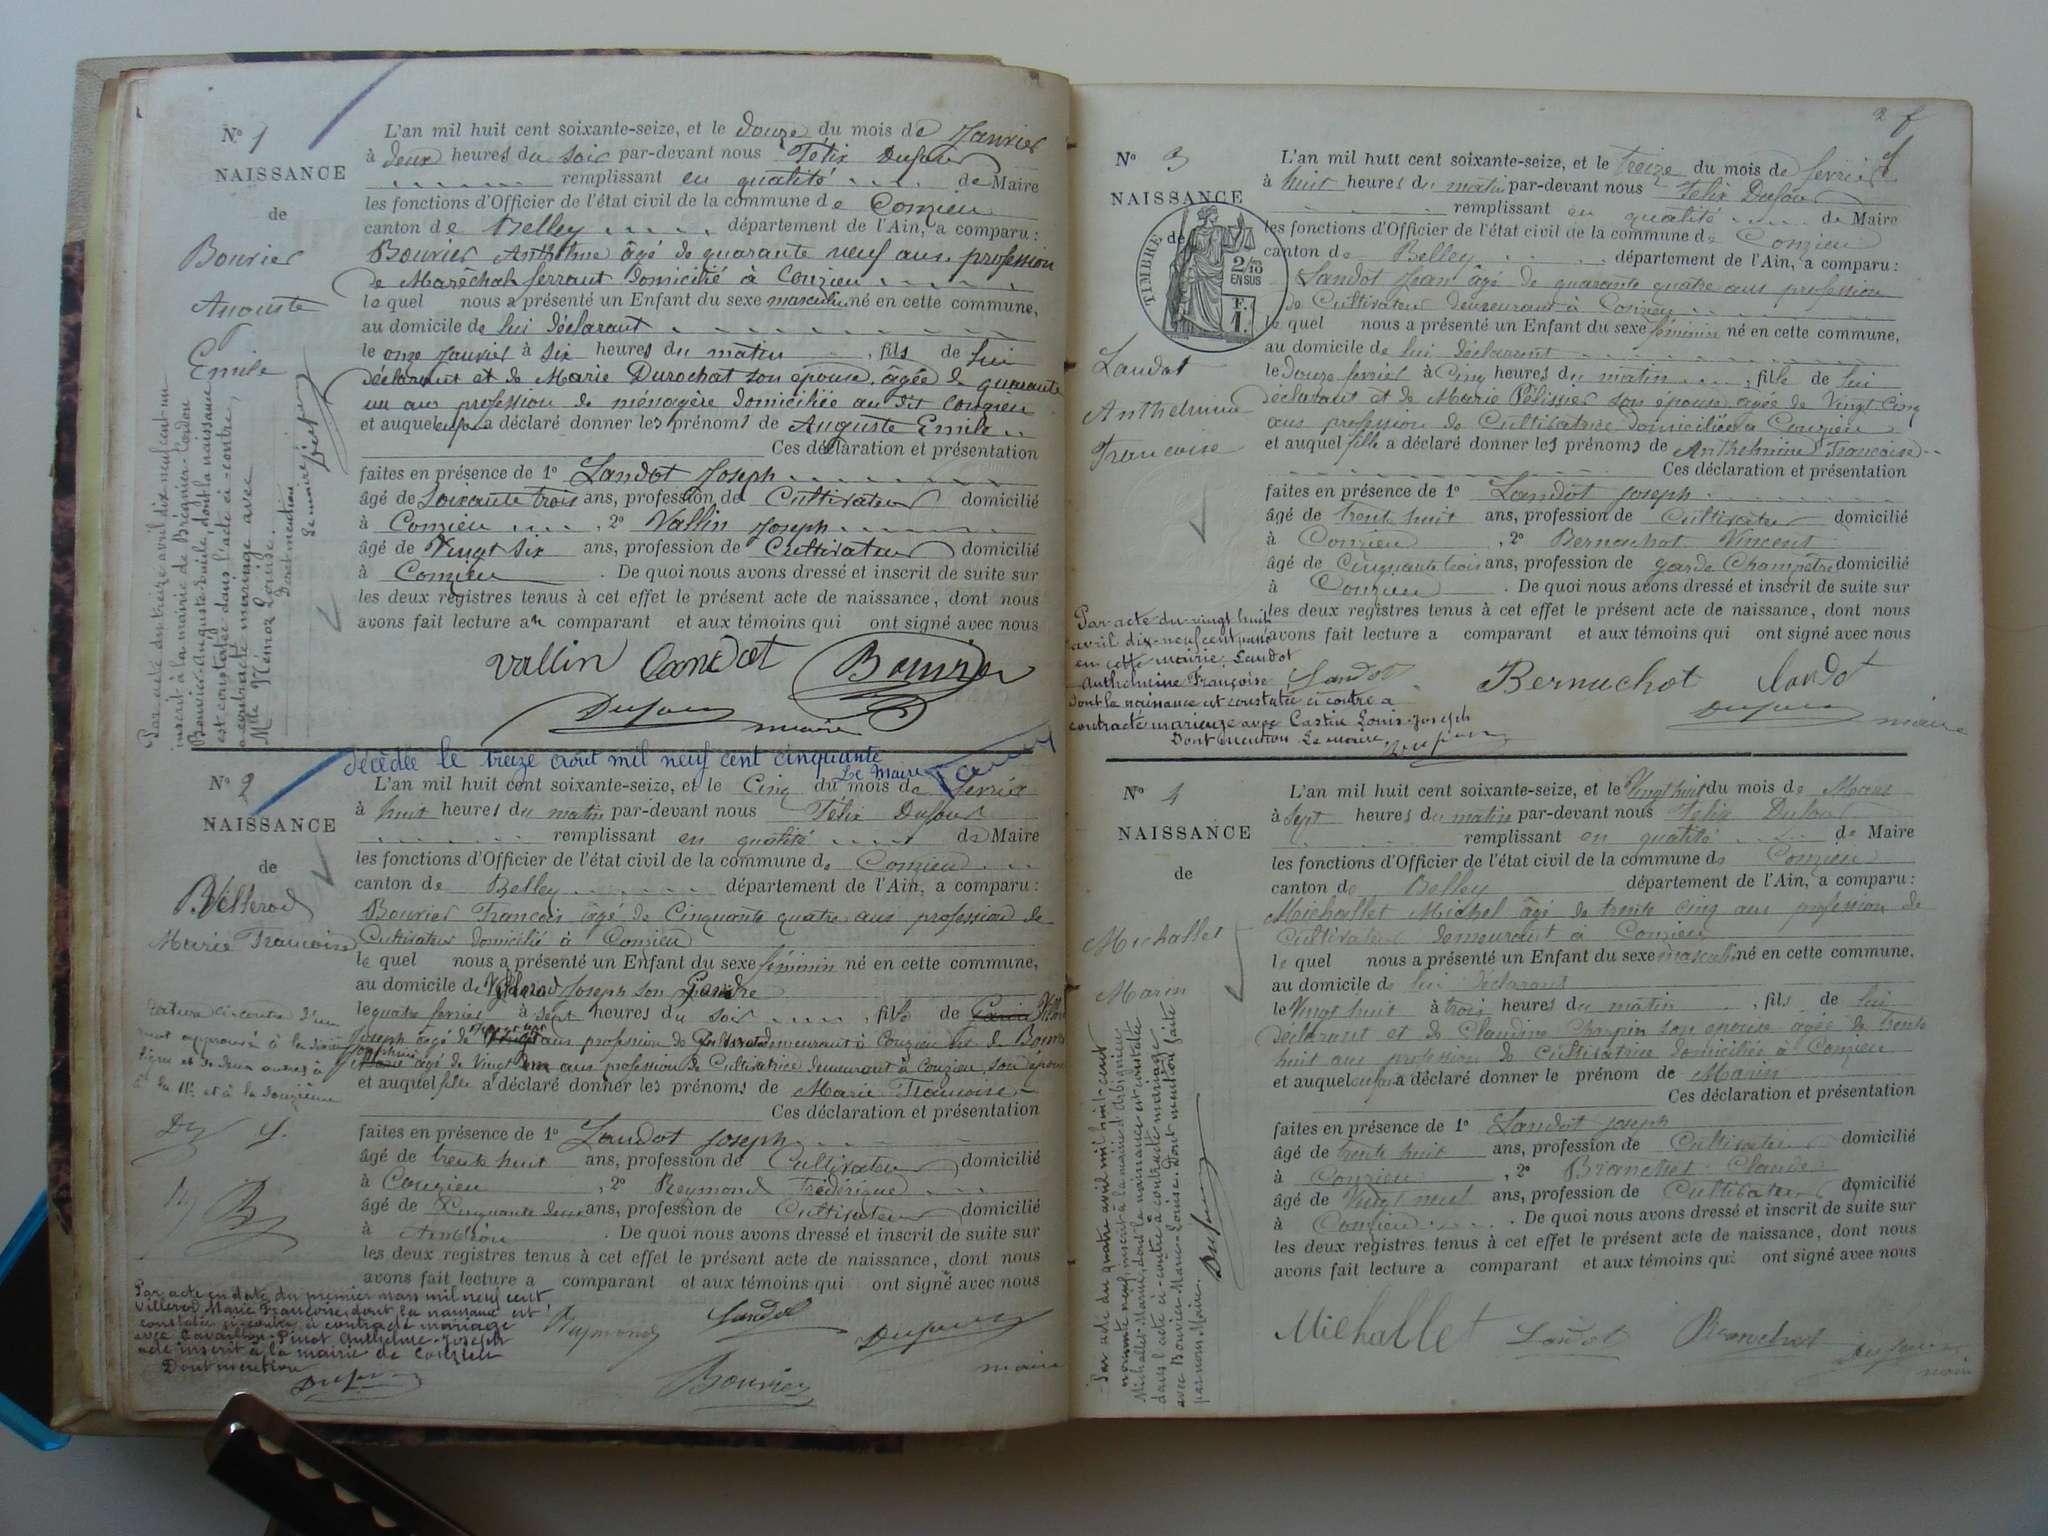 Nº 1
NAISSANCE
de
Bouvier
Auguste
Emile
L'an mil huit cent soixante-seize, et le douze du mois de Janvier
à deux heures du soir par-devant nous Félix Dufour
remplissant en qualité de Maire
les fonctions d'Officier de l'état civil de la commune de Conzieu
canton de Belley département de l'Ain, a comparu :
Bouvier Anthelme âgé de quarante neuf ans profession
de Maréchal ferrant domicilié à Conzieu
lequel nous a présenté un Enfant du sexe masculin né en cette commune,
au domicile de lui déclarant
le onze Janvier à six heures du matin, fils de lui
déclarant et de Marie Durochat son épouse, âgée de quarante
un ans profession de ménagère domiciliée au dit Conzieu
et auquel a déclaré donner les prénoms de Auguste Emile
Ces déclaration et présentation
faites en présence de 1º Landot Joseph
âgé de Soixante trois ans, profession de Cultivateur domicilié
à Conzieu, 2º Vallin Joseph
âgé de Vingt six ans, profession de Cultivateur domicilié
à Conzieu. De quoi nous avons dressé et inscrit de suite sur
les deux registres tenus à cet effet le présent acte de naissance, dont nous
avons fait lecture au comparant et aux témoins qui ont signé avec nous
Vallin Landot Bouvier
Dufour maire
Par acte du treize avril dix neuf cent un
inscrit à la mairie de Brégnier-Cordon
Bouvier Auguste Emile, dont la naissance
est constatée dans l'acte ci-contre,
a contracté mariage avec
Mlle Louise.
Dont mention
Le maire,
Dufour
décédée le treize août mil neuf cent cinquante
Le Maire
Nº 2
NAISSANCE
de
Villerod
Marie Françoise
L'an mil huit cent soixante-seize, et le Cinq du mois de février
à huit heures du matin par-devant nous Félix Dufour
remplissant en qualité de Maire
les fonctions d'Officier de l'état civil de la commune de Conzieu
canton de Belley département de l'Ain, a comparu :
Bouvier François âgé de Cinquante quatre ans profession de
Cultivateur domicilié à Conzieu
lequel nous a présenté un Enfant du sexe féminin né en cette commune,
au domicile de Joseph son Gendre
le quatre février à sept heures du soir, fille de
Joseph âgé de ans profession de demeurant à Conzieu et de
âgé de Vingt ans profession de Cultivatrice demeurant à Conzieu, son épouse
et auquel fille a déclaré donner les prénoms de Marie Françoise
Ces déclaration et présentation
faites en présence de 1º Landot Joseph
âgé de trente huit ans, profession de Cultivateur domicilié
à Conzieu, 2º Reymond Frédérique
âgé de Cinquante deux ans, profession de Cultivateur domicilié
à Ambléon. De quoi nous avons dressé et inscrit de suite sur
les deux registres tenus à cet effet le présent acte de naissance, dont nous
avons fait lecture a comparant et aux témoins qui ont signé avec nous
Reymond Landot Dufour
Bouvier maire
rature ci-contre d'un
mot approuvé à la
ligne et de deux autres à
la 11e et à la douzième
Par acte en date du premier mars mil neuf cent
Villerod Marie Françoise, dont la naissance est
constatée ci-contre a contracté mariage
avec Anthelme-Joseph
acte inscrit à la mairie de Conzieu
Dont mention
Dufour
2
Nº 3
NAISSANCE
de
TIMBRE
2/10
EN SUS
F.
1.
Landot
Anthelmine
Françoise
L'an mil huit cent soixante-seize, et le treize du mois de février
à huit heures du matin par-devant nous Félix Dufour
remplissant en qualité de Maire
les fonctions d'Officier de l'état civil de la commune de Conzieu
canton de Belley département de l'Ain, a comparu :
Landot Jean âgé de quarante quatre ans profession
de Cultivateur demeurant à Conzieu
lequel nous a présenté un Enfant du sexe féminin né en cette commune,
au domicile de lui déclarant
le douze février à Cinq heures du matin, fille de lui
déclarant et de Marie Pélissier son épouse, agée de Vingt Cinq
ans profession de Cultivatrice domiciliée à Conzieu
et auquel fille a déclaré donner les prénoms de Anthelmine Françoise
Ces déclaration et présentation
faites en présence de 1º Landot Joseph
âgé de trente huit ans, profession de Cultivateur domicilié
à Conzieu, 2º Bernuchot Vincent
âgé de Cinquante trois ans, profession de garde Champêtre domicilié
à Conzieu. De quoi nous avons dressé et inscrit de suite sur
les deux registres tenus à cet effet le présent acte de naissance, dont nous
avons fait lecture a comparant et aux témoins qui ont signé avec nous
Landot Bernuchot Landot
Dufour maire
Par acte du vingt huit
avril dix-neuf cent passé
en cette mairie Landot
Anthelmine Françoise
dont la naissance est constatée ci contre a
contracté mariage avec Castin Louis-Joseph
Dont mention Le maire,
Dufour
Nº 4
NAISSANCE
de
Michallet
Marin
L'an mil huit cent soixante-seize, et le Vingt huit du mois de Mars
à sept heures du matin par-devant nous Félix Dufour
remplissant en qualité de Maire
les fonctions d'Officier de l'état civil de la commune de Conzieu
canton de Belley département de l'Ain, a comparu :
Michallet Michel âgé de trente cinq ans profession de
Cultivateur demeurant à Conzieu
lequel nous a présenté un Enfant du sexe masculin né en cette commune,
au domicile de lui déclarant
le Vingt huit à trois heures du matin, fils de lui
déclarant et de Claudine Charpin son épouse agée de trente
huit ans profession de Cultivatrice domiciliée à Conzieu
et auquel enfant a déclaré donner le prénom de Marin
Ces déclaration et présentation
faites en présence de 1º Landot Joseph
âgé de trente huit ans, profession de Cultivateur domicilié
à Conzieu, 2º Branchet Claude
âgé de Vingt neuf ans, profession de Cultivateur domicilié
à Conzieu. De quoi nous avons dressé et inscrit de suite sur
les deux registres tenus à cet effet le présent acte de naissance, dont nous
avons fait lecture a comparant et aux témoins qui ont signé avec nous
Michallet Landot Branchet
Dufour maire
Par acte du quatre avril mil huit-cent
inscrit à la mairie d'Arbignieu
Michallet Marin, dont la naissance est constatée
dans l'acte ci-contre a contracté mariage
avec Bouvier Marie-Louise. Dont mention faite
par nous Maire.
Dufour